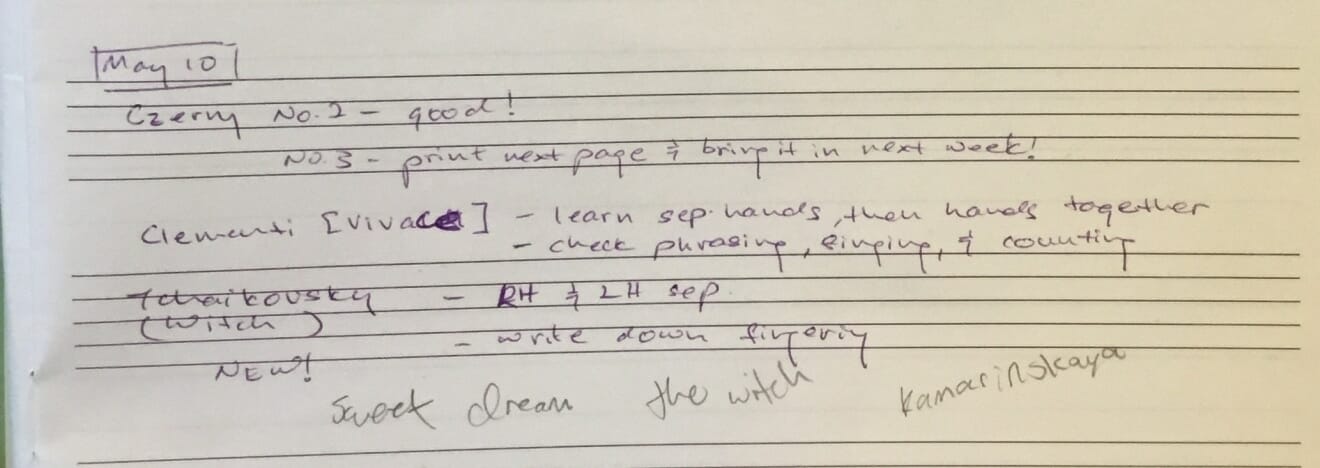 May 10
Czerny No.2 - good!
No.3 - print next page & bring it in next week!
Clementi [Vivace] - learn sep. hands, then hands together
- check phrasing, singing, & counting
Tchaikovsky - RH & LH sep.
(Witch)
- write down fingering
NEW!
Sweet dream the witch Kamarinskaya